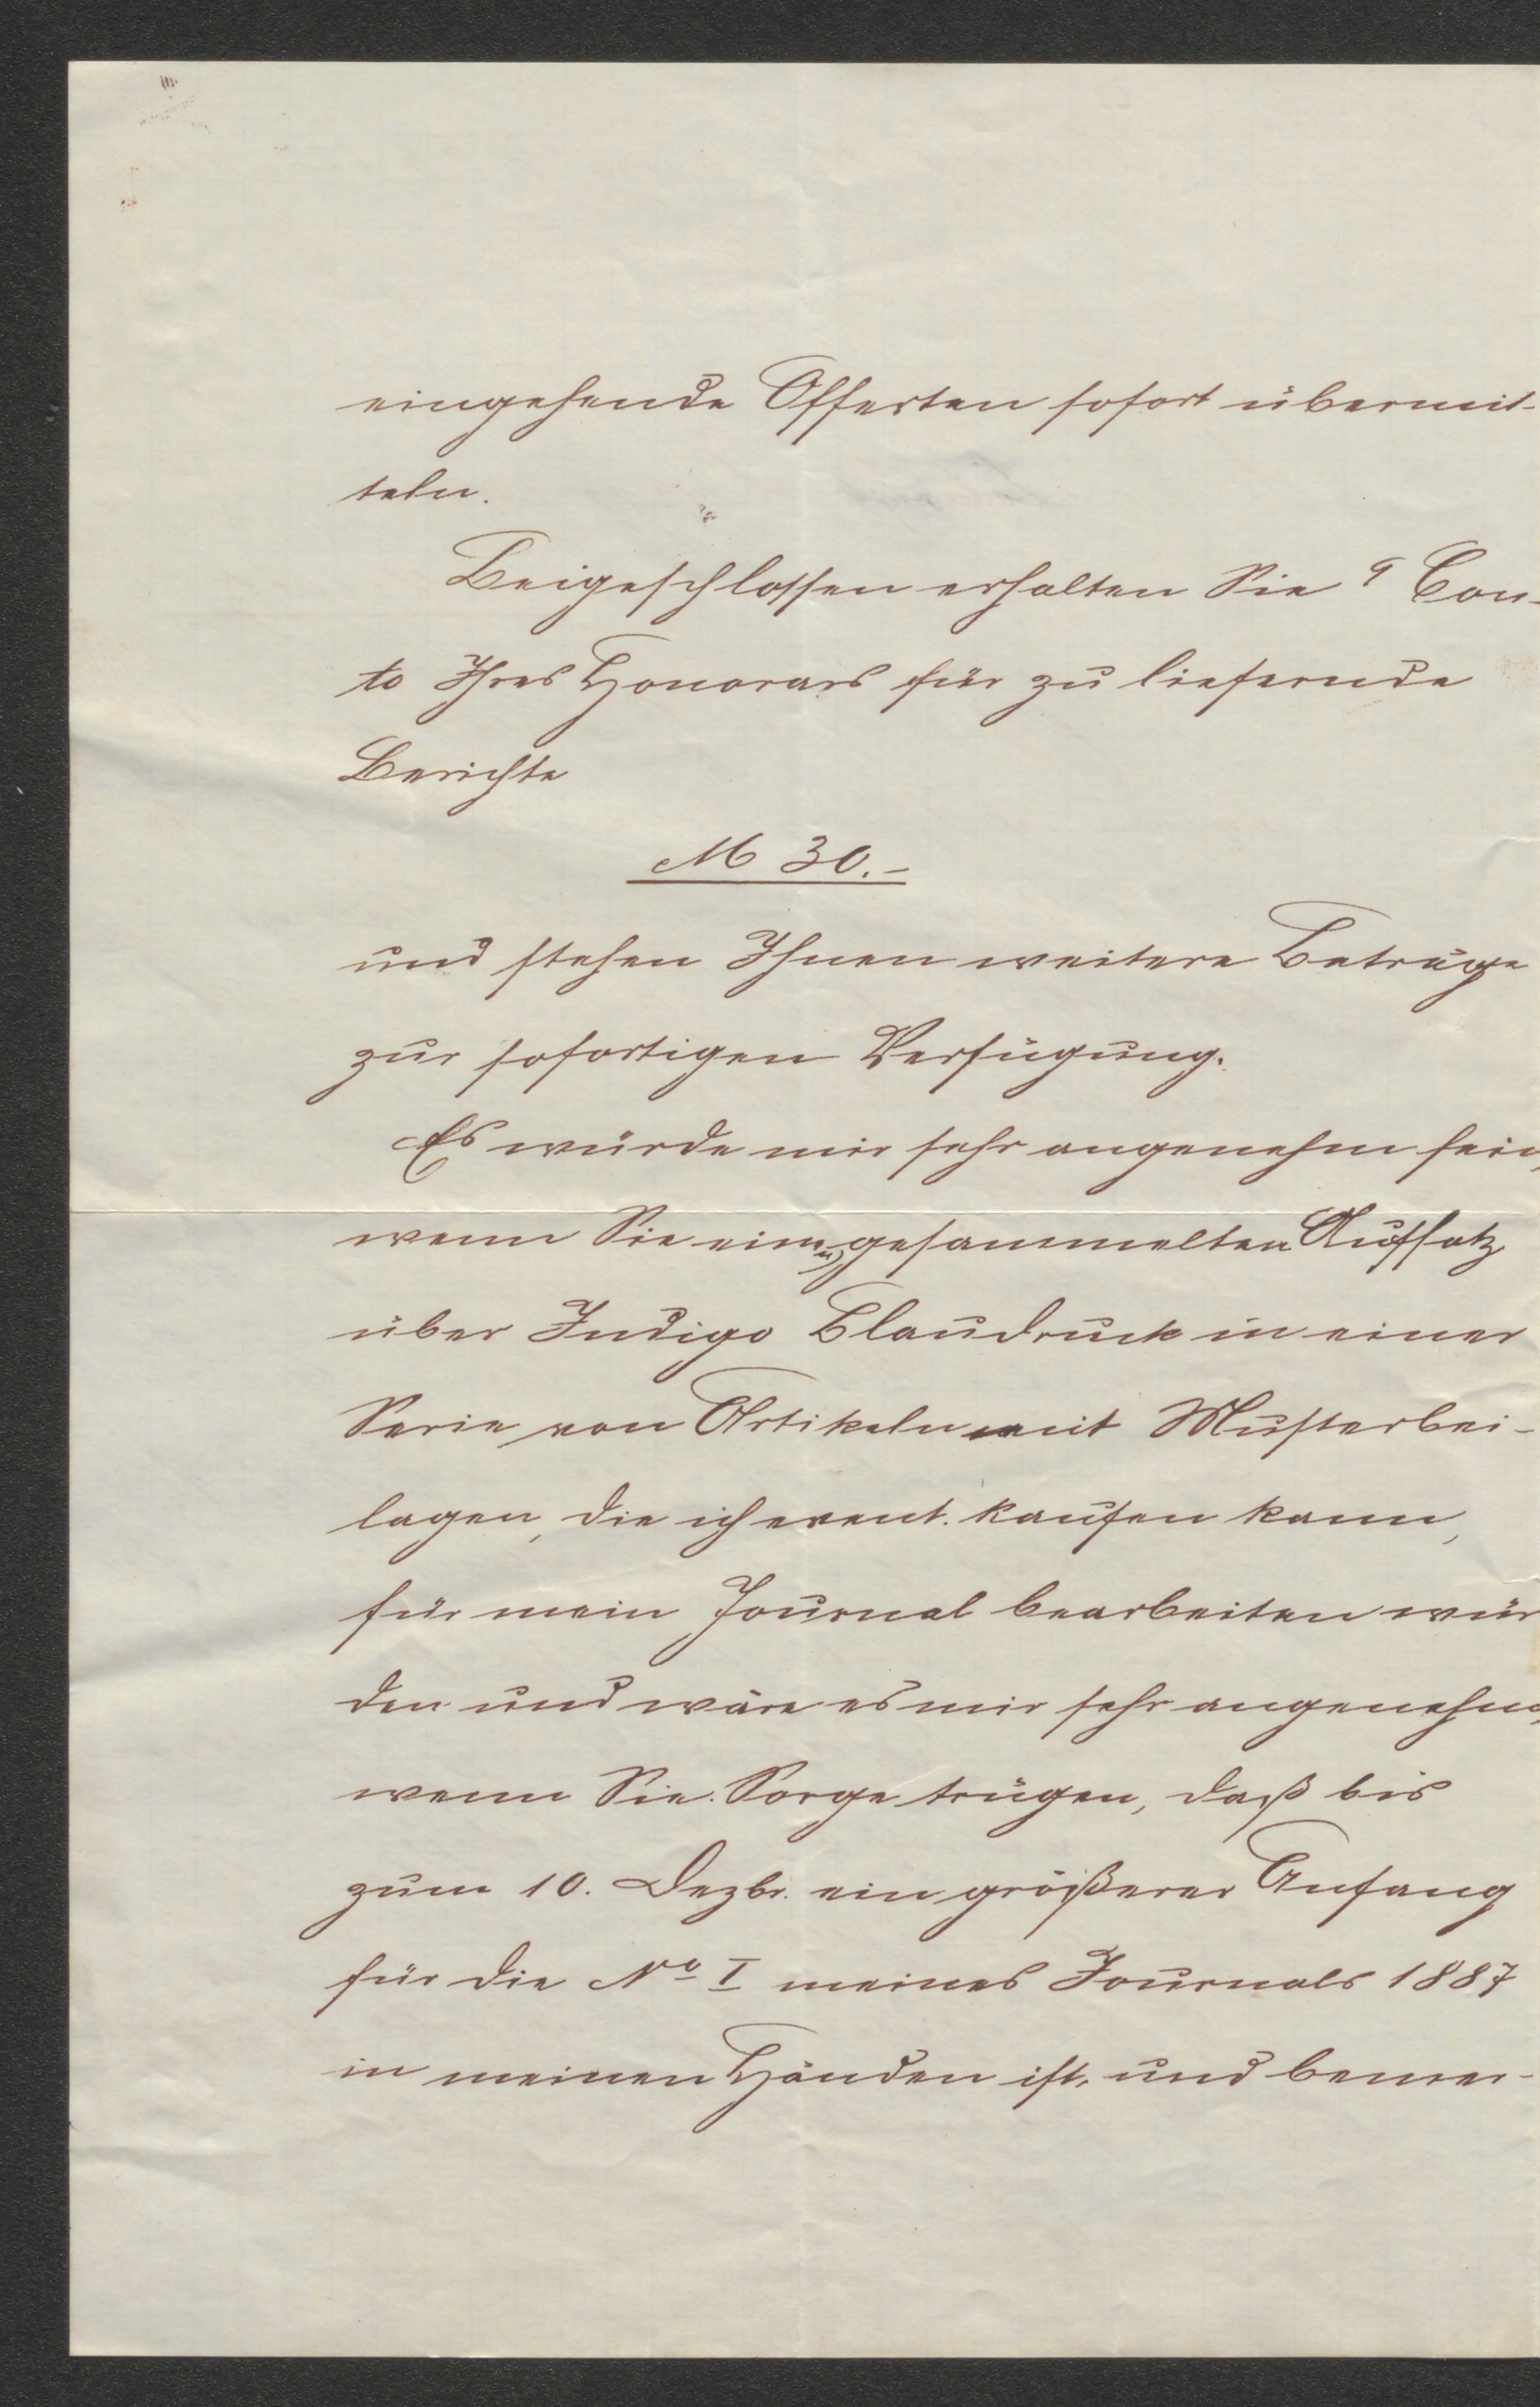 eingehende Offerten sofort übermit-
teln.
Beigeschlossen erhalten Sie a Con-
to Ihres Honorars für zu liefernde
Berichte
M 30.-
und stehen Ihnen weitere Beträge
zur sofortigen Verfügung.
Es würde mir sehr angenehm sein,
wenn Sie einen gesammelten Aufsatz
über Indigo Blaudruck in einer
Serie von Artikeln mit Musterbei-
lagen, die ich event. kaufen kann,
für mein Journal bearbeiten wür
den und wäre es mir sehr angenehm,
wenn Sie Sorge trügen, daß bis
zum 10. Dezbr. ein größerer Anfang
für die No I meines Journals 1887
in meinen Händen ist, und bemer-